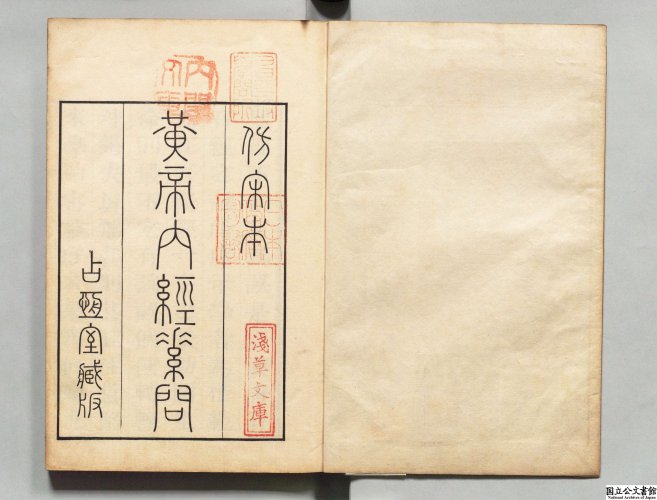 仿宋本
黃帝內經素問
占恆室藏版
淺草文庫
国立公文書館
National Archives of Japan